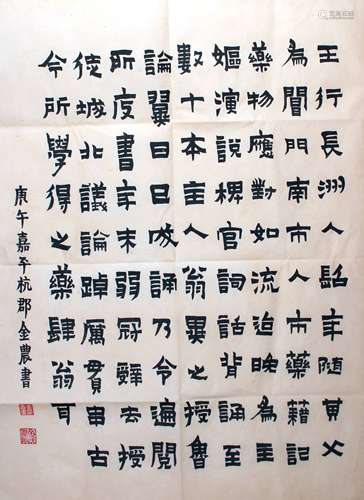 王行長洲人髫年隨其父
為閶門南市人市藥籍記
藥物應對如流迨晚為主
嫗演說稗官詞話背誦至
數十本主人翁異之授魯
論翼日已成誦乃令遍閱
所庋書年未弱冠辭去授
徒城北議論踔厲貫串古
今所學得之藥肆翁耳
庚午嘉平杭郡金農書